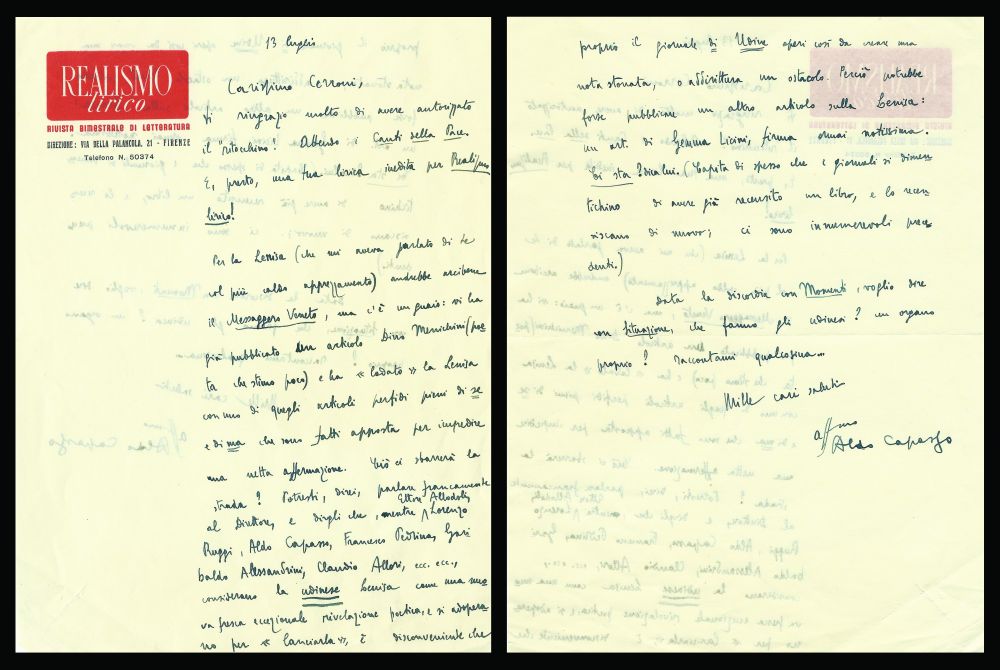 13 luglio
REALISMO
lirico
RIVISTA BIMESTRALE DI LETTERATURA
DIREZIONE : VIA DELLA PALANCOLA, 21 - FIRENZE
Telefono N. 50374
Carissimo Cerroni,
Ti ringrazio molto di avere autorizzato
il "stocchino". Attendo i Canti della Pace.
E, presto, una tua lirica inedita per Realismo
lirico!
Per la Lenisa (che mi aveva parlato di te
col più caldo apprezzamento) andrebbe arcibene
il Messaggero Veneto, ma c'è un guaio: vi ha
già pubblicato un articolo Dino Menichini (poe
ta che stimo poco) e ha «lodato» la Lenisa
con uno di quegli articoli perfidi pieni di se
e di ma che sono fatti apposta per impedire
una netta affermazione. Ciò ci sbarrerà la
strada? Potresti, direi, parlare francamente
al Direttore, e dirgli che, mentre Ettore Allodoli, Lorenzo
Ruggi, Aldo Capasso, Francesco Pedrina, Gari
baldo Alessandrini, Claudio Allori, ecc. ecc.,
considerano la udinese Lenisa come una nuo
va fresca eccezionale rivelazione poetica, e si adopera
no per «lanciarla», è disconveniente che
proprio il giornale di Udine operi così da creare una
nota stonata, o addirittura un ostacolo. Perciò potrebbe
forse pubblicare un altro articolo sulla Lenisa:
un art. di Gemma Licini, firma ormai notissima.
Ci sta? dica lui. (Capita di spesso che i giornali si dimen
tichino di avere già recensito un libro, e lo recen
siscano di nuovo; ci sono innumerevoli prece
denti.)
Data la discordia con Momenti, voglio dire
con Situazione, che fanno gli udinesi? un organo
proprio? Raccontami qualcosina...
Mille cari saluti
aff.mo
Aldo Capasso